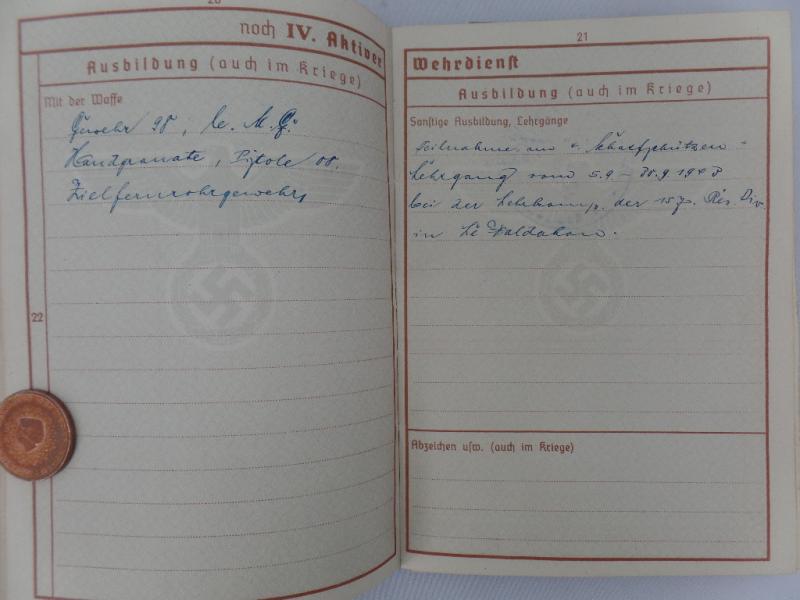 20
noch IV. Aktiver
Ausbildung (auch im Kriege)
Mit der Waffe
Gewehr 98, le. M. G.
Handgranate, Pistole 08.
Zielfernrohrgewehr,
22
21
Wehrdienst
Ausbildung (auch im Kriege)
Sonstige Ausbildung, Lehrgänge
Teilnahme am Scharfschützen-
Lehrgang vom 5.9 –
bei der Lehrkomp. der 157. Res. Div.
in Le
Abzeichen usw. (auch im Kriege)